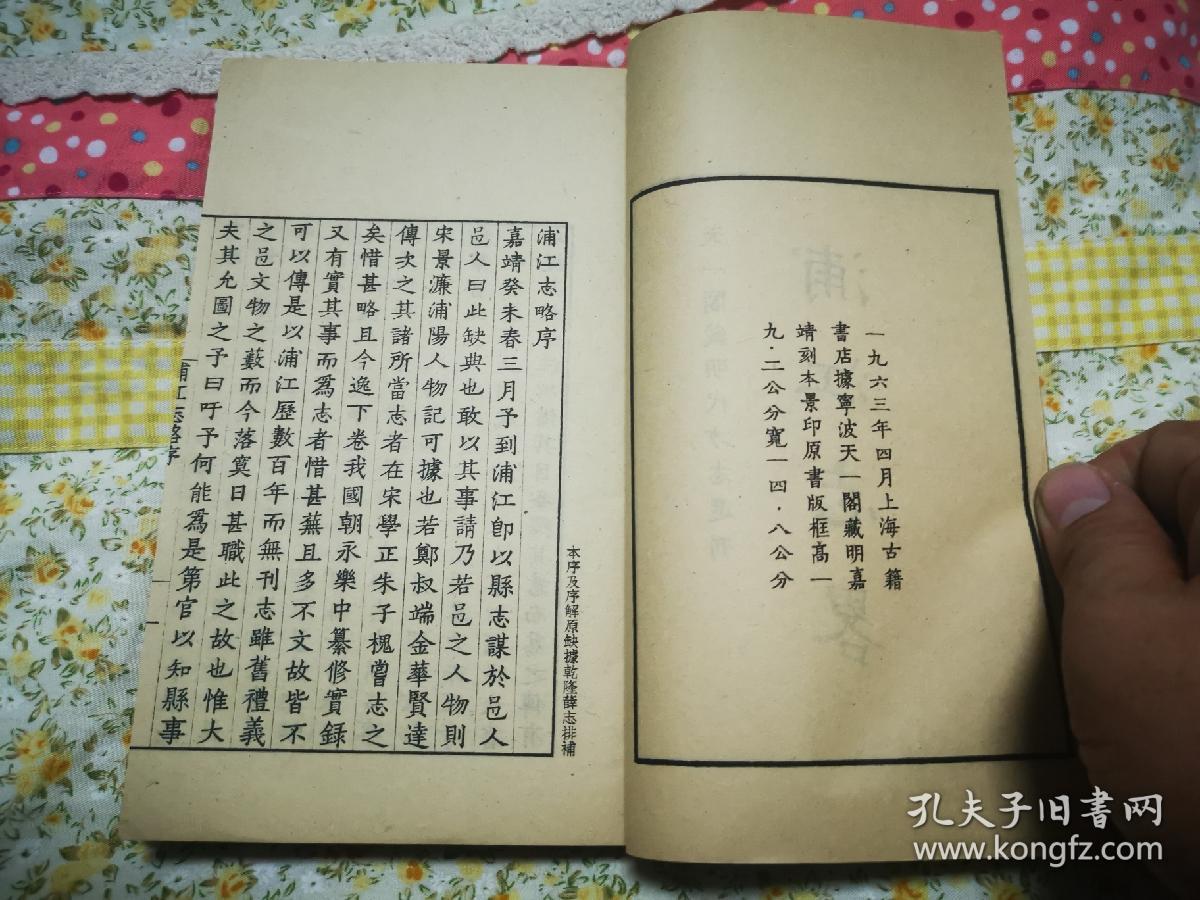 一九六三年四月上海古籍
書店據寧波天一閣藏明嘉
靖刻本景印原書版框高一
九·二公分寬一四·八公分
本序及序解原缺據乾隆薛志排補
浦江志略序
嘉靖癸未春三月予到浦江卽以縣志謀於邑人
邑人曰此缺典也敢以其事請乃若邑之人物則
宋景濂浦陽人物記可據也若鄭叔端金華賢達
傳次之其諸所當志者在宋學正朱子槐嘗志之
矣惜甚略且今逸下卷我國朝永樂中纂修實録
又有實其事而爲志者惜甚蕪且多不文故皆不
可以傳是以浦江歷數百年而無刊志雖舊禮義
之邑文物之藪而今落寞日甚職此之故也惟大
夫其允圖之予曰吁予何能爲是第官以知縣事
浦江志略序
一
孔夫子旧書网
www.kongfz.com